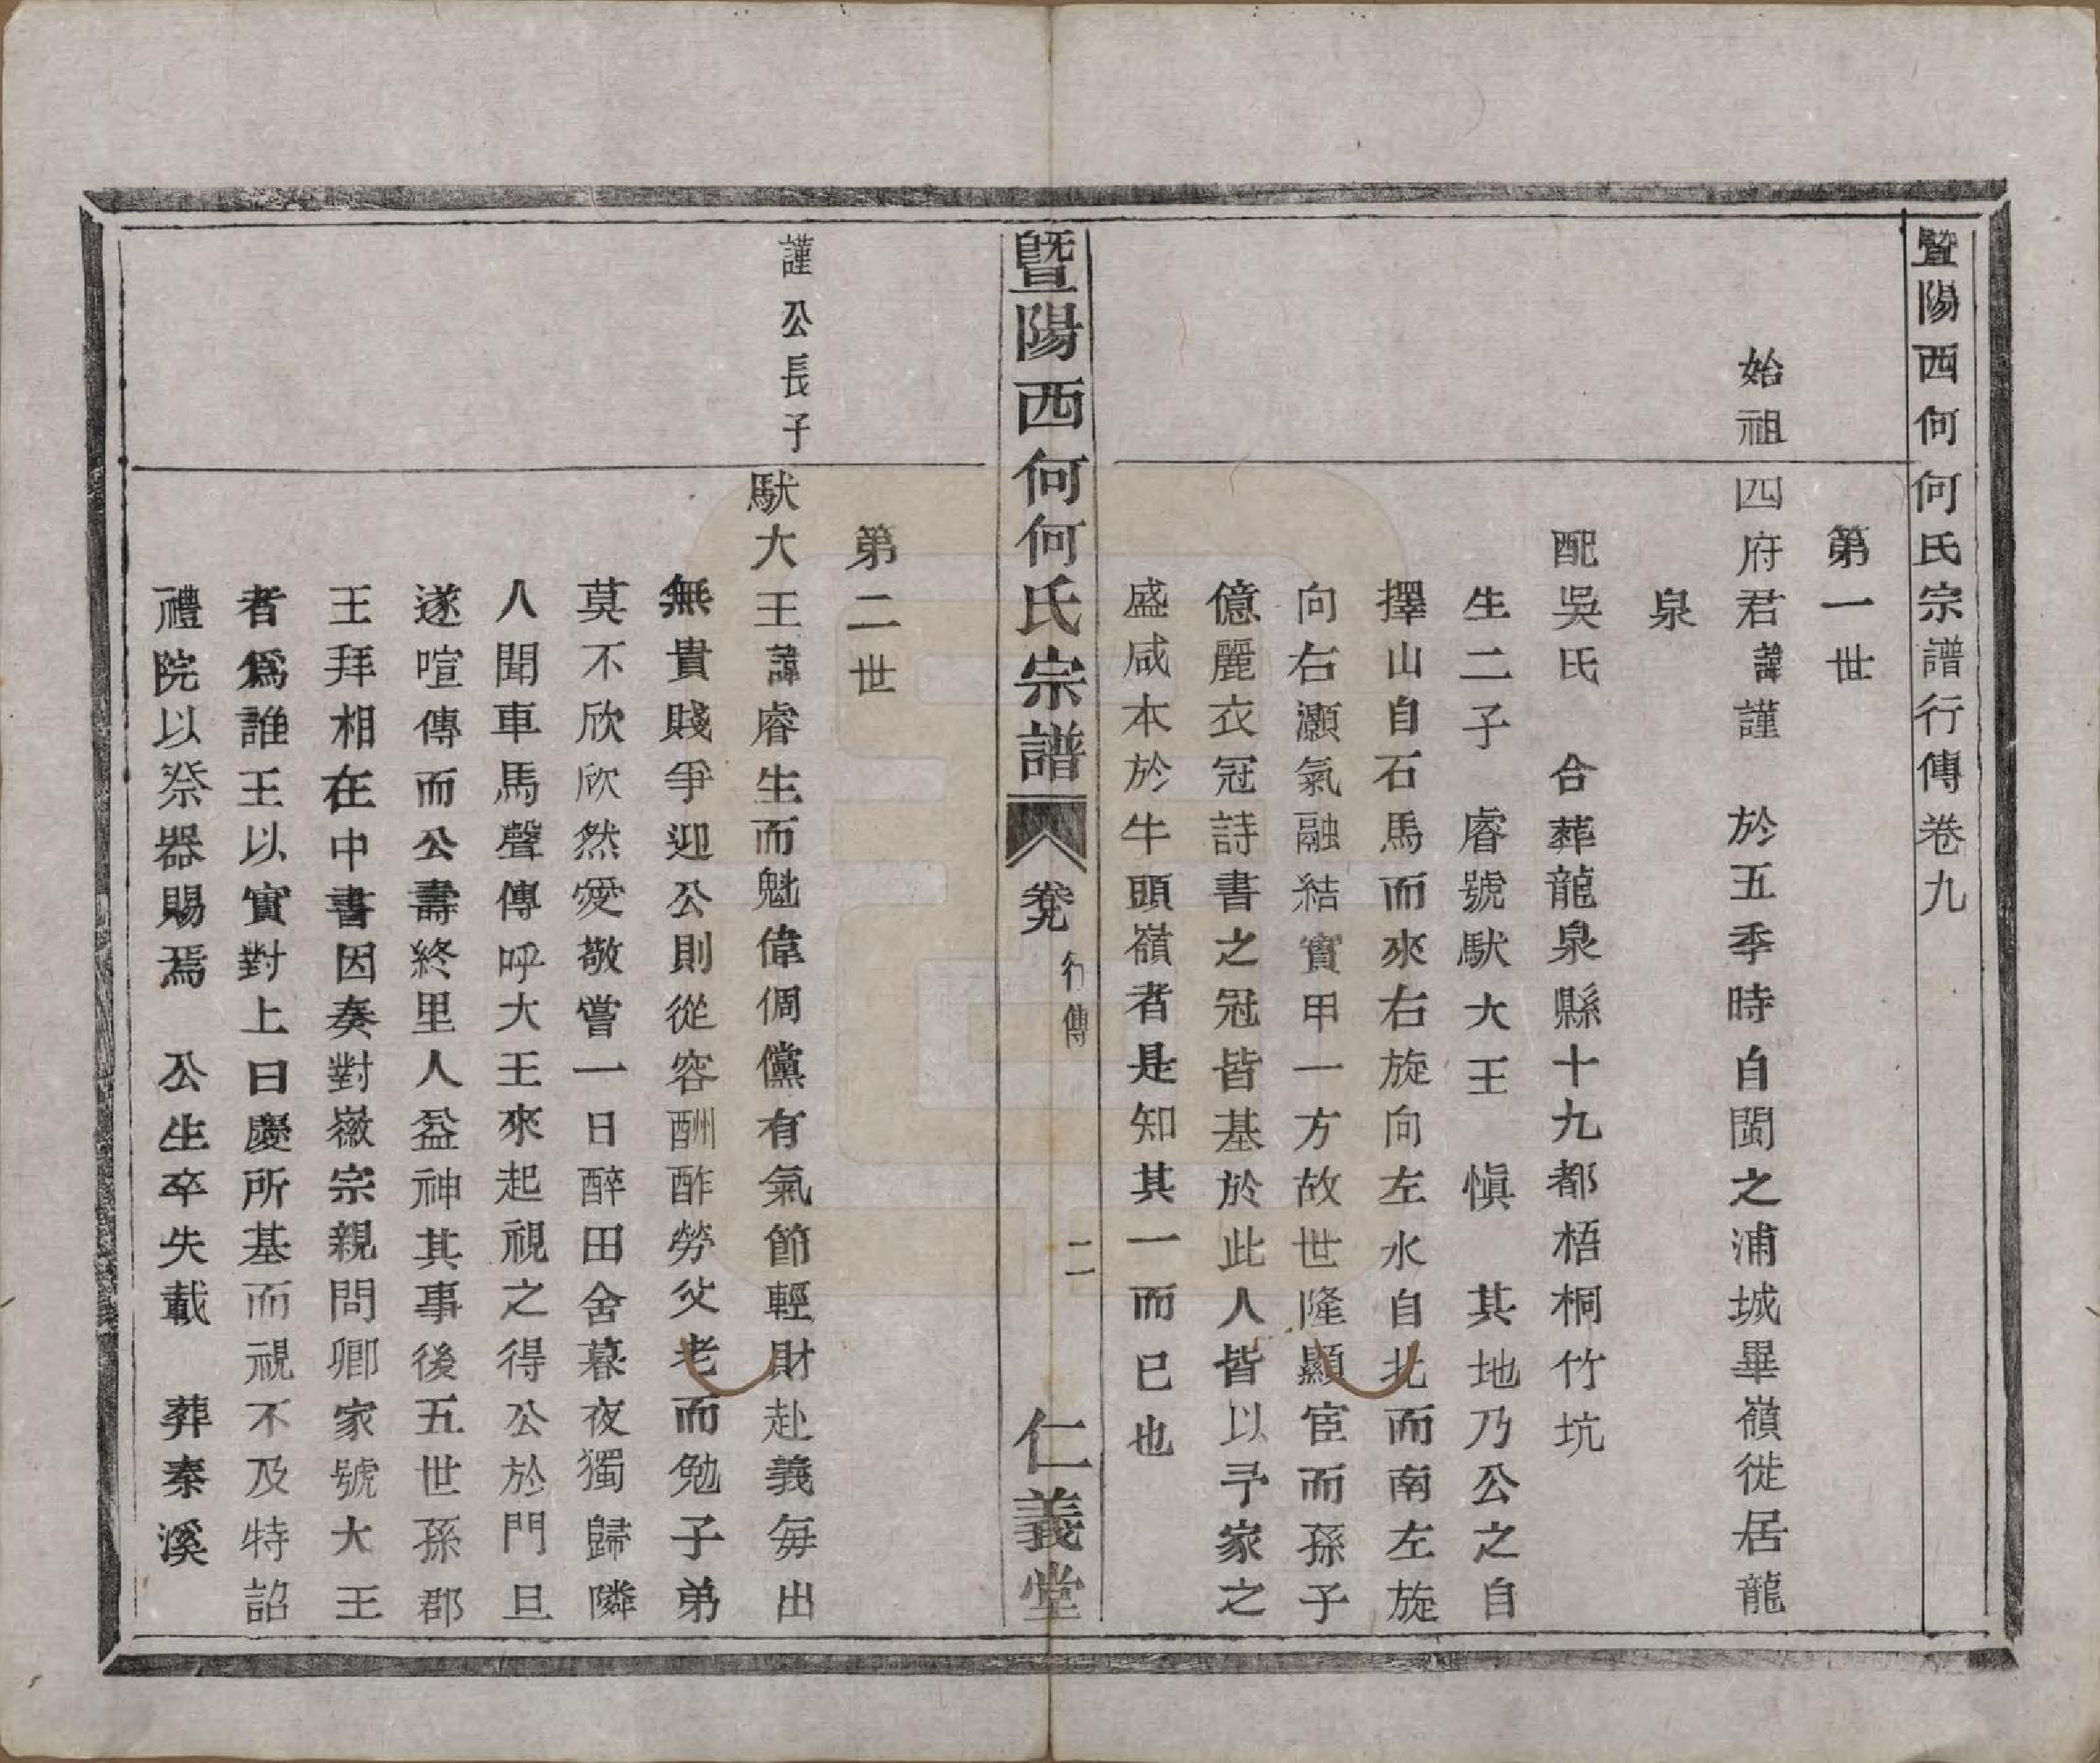 暨陽西何何氏宗譜行傳卷九
第一世
始祖四府君諱謹　於五季時自閩之浦城畢嶺徙居龍
泉
配吳氏　合葬龍泉縣十九都梧桐竹坑
生二子　睿號馱大王　愼　其地乃公之自
擇山自石馬而來右旋向左水自北而南左旋
向右灝氣融結實甲一方故世隆顯宦而孫子
億麗衣冠詩書之冠皆基於此人皆以予家之
盛咸本於牛頭嶺者是知其一而已也
暨陽西何何氏宗譜　卷九　行傳　二　仁義堂
第二世
謹公長子　馱大王諱睿生而魁偉倜儻有氣節輕財赴義每出
無貴賤爭迎公則從容酬酢勞父老而勉子弟
莫不欣欣然愛敬嘗一日醉田舍暮夜獨歸隣
人聞車馬聲傳呼大王來起視之得公於門旦
遂喧傳而公壽終里人益神其事後五世孫郡
王拜相在中書因奏對徽宗親問卿家號大王
者爲誰王以實對上曰慶所基而視不及特詔
禮院以祭器賜焉　公生卒失載　葬秦溪